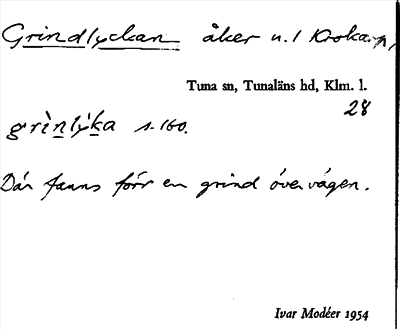 Grindlyckan åker n.1 Krokarp,
Tuna sn, Tunaläns hd, Klm. l.
28
grìnlýka s. 160.
Där fanns förr en grind över vägen.
Ivar Modéer 1954